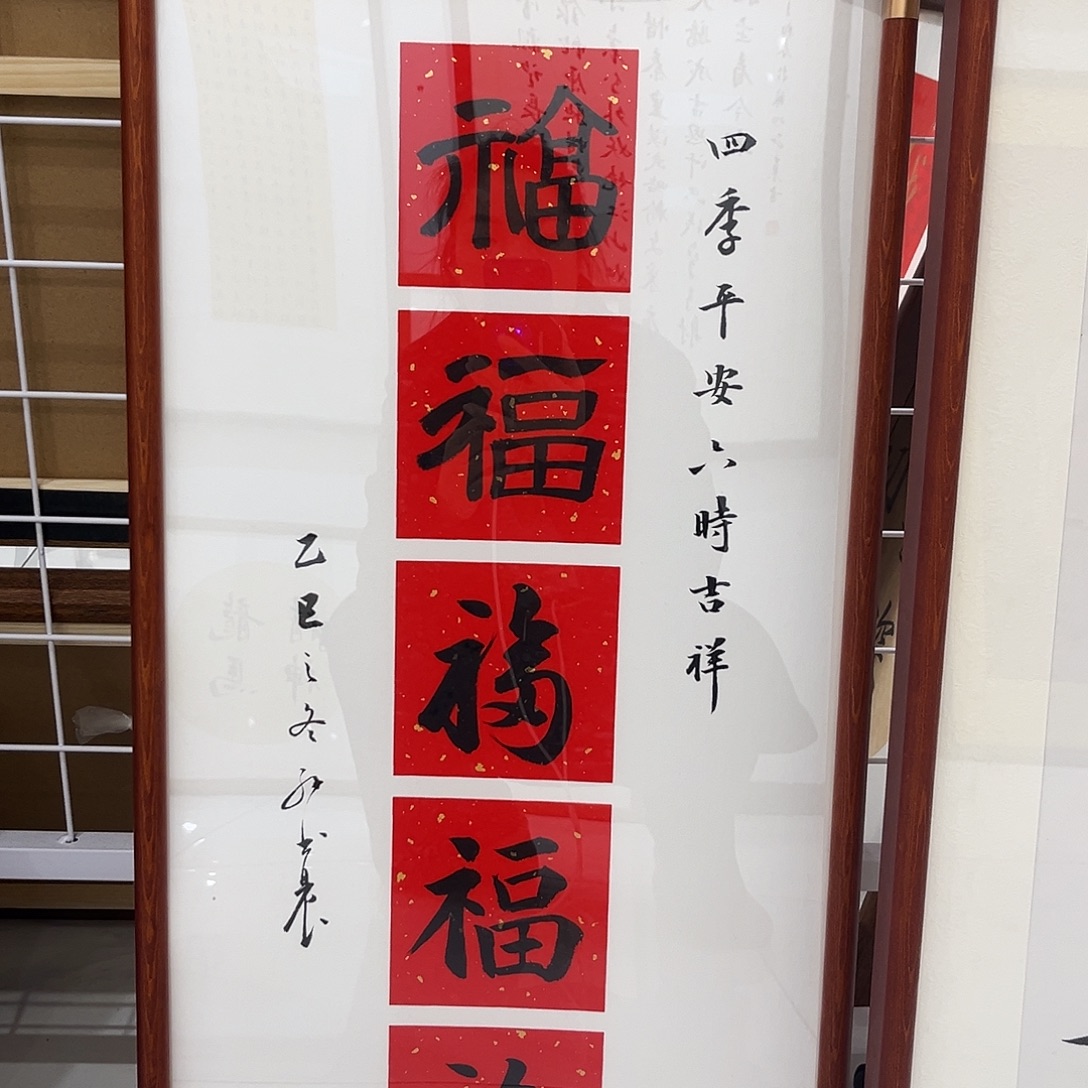 四季平安六時吉祥
福
福
福
福
乙巳之冬